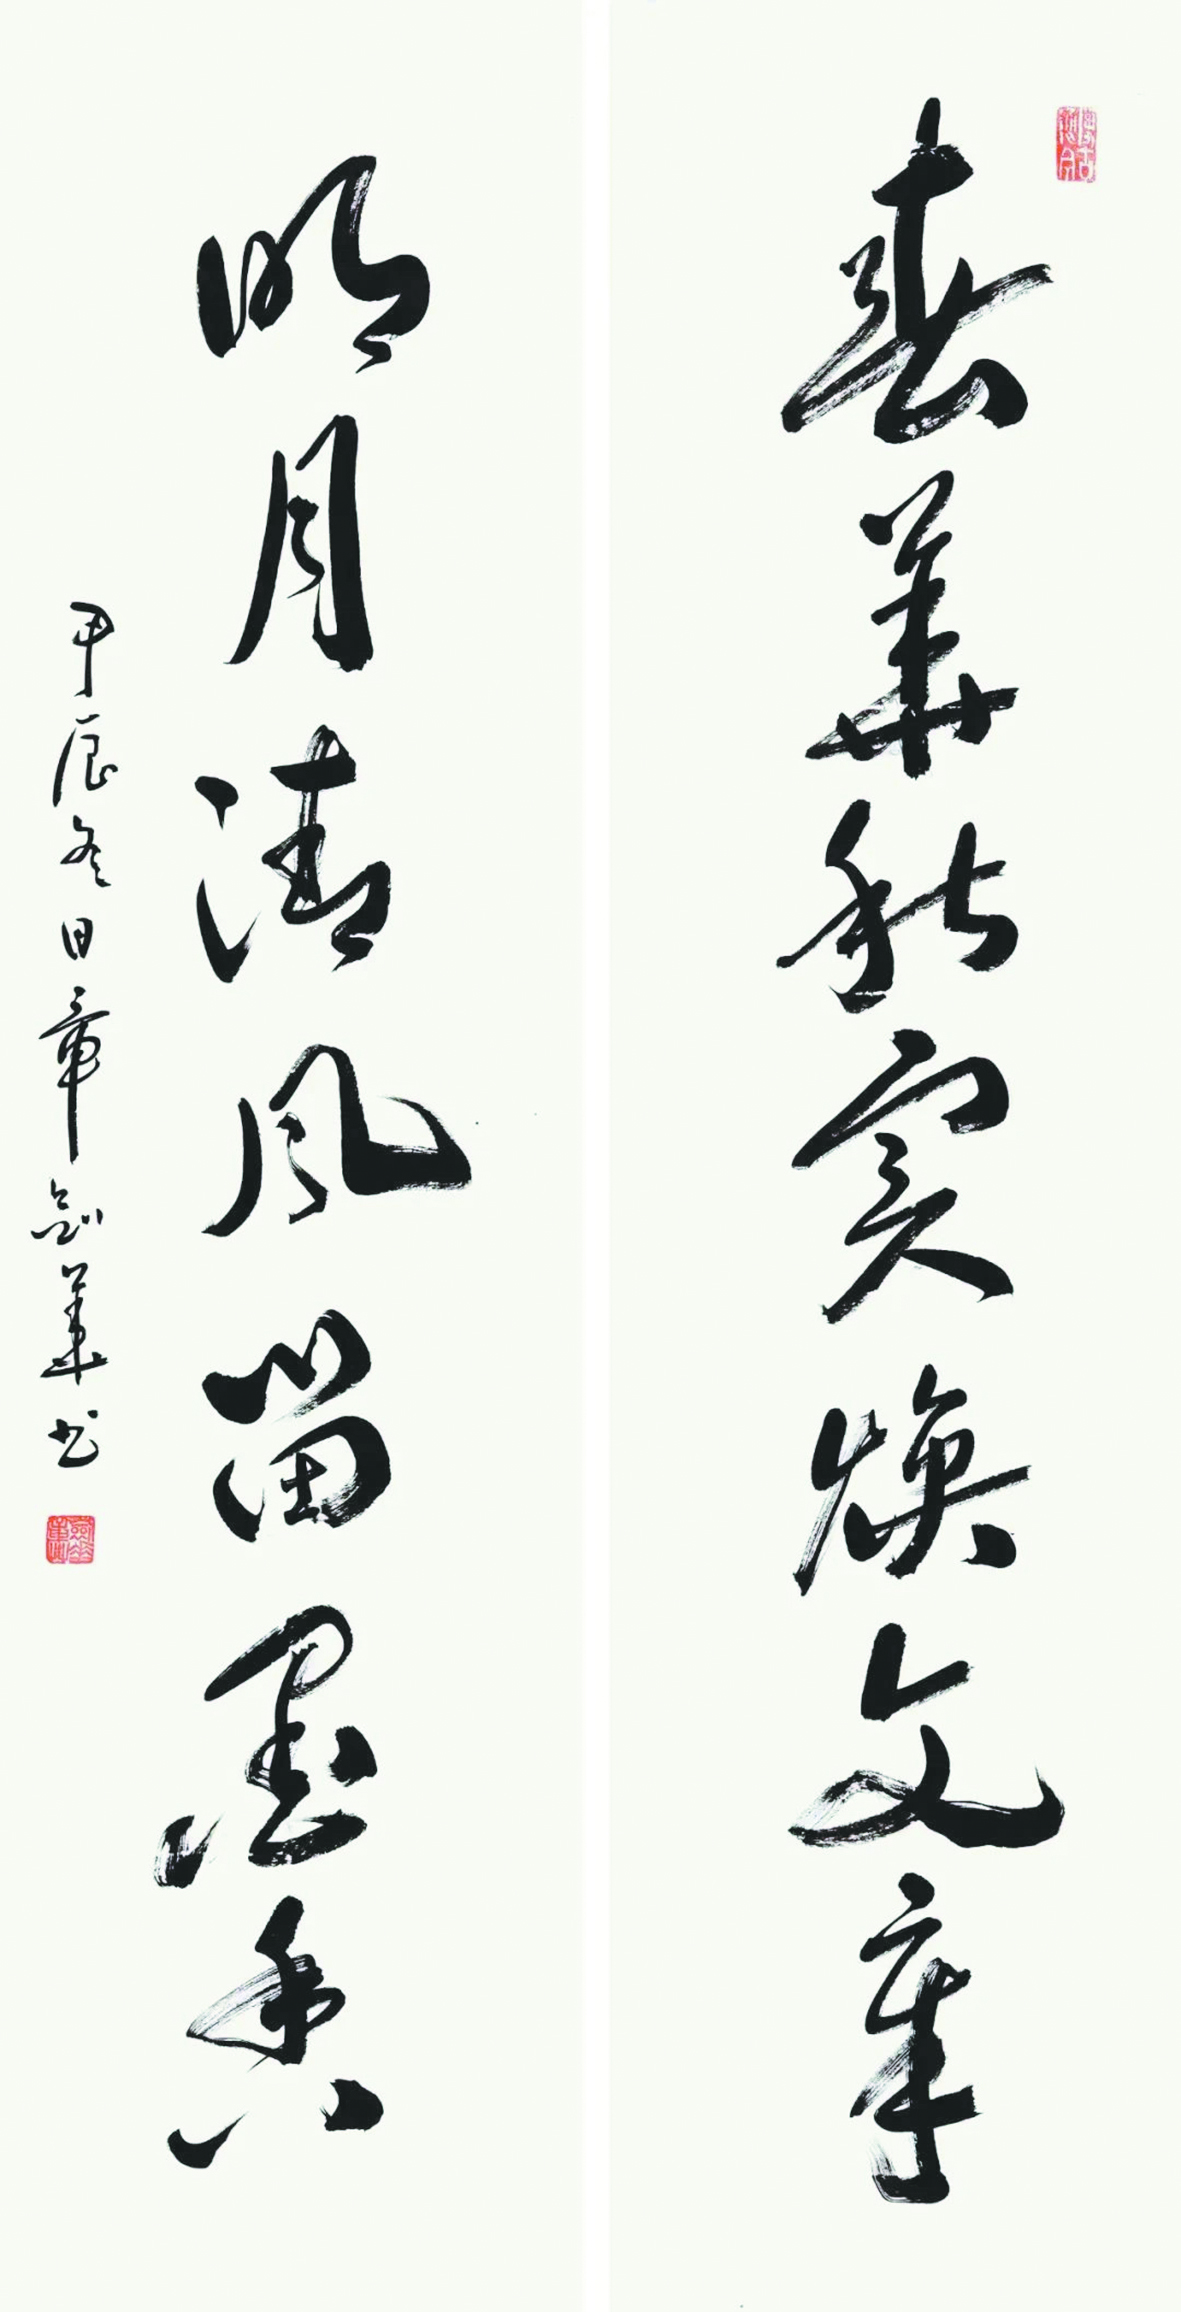 春華秋實煥文章
明月清風留墨香
甲辰冬日章劍華书